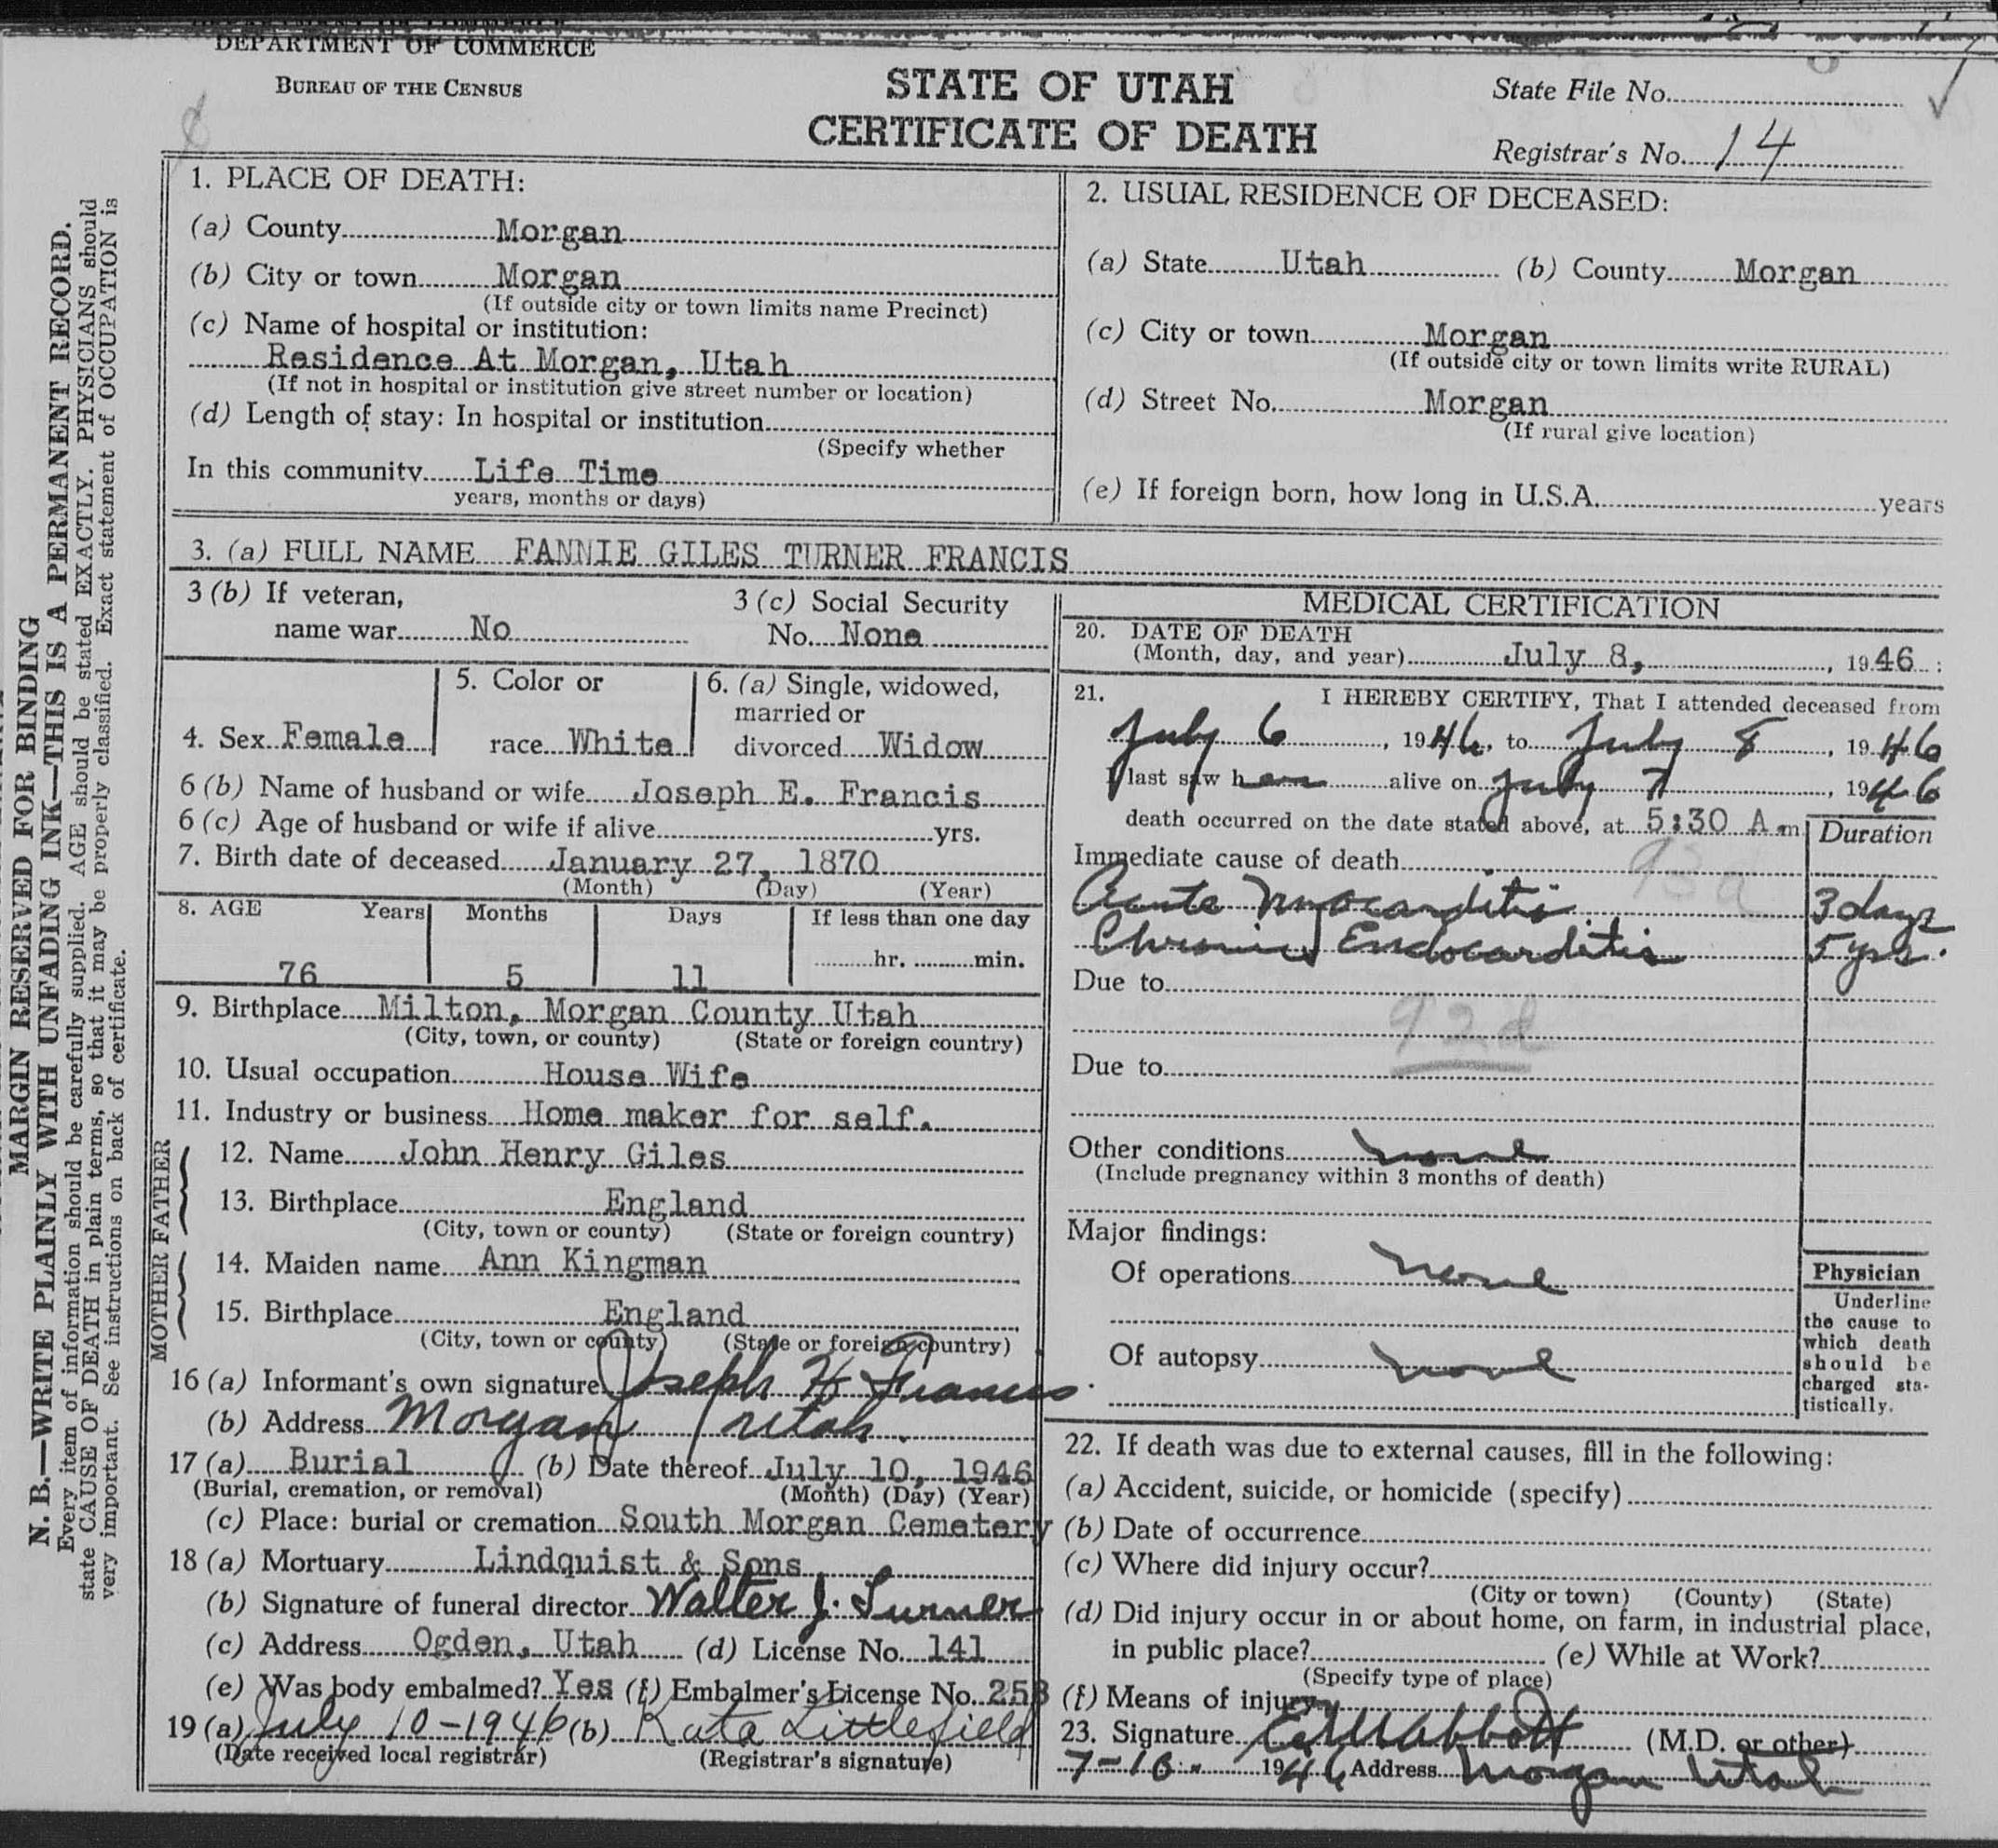 DEPARTMENT OF COMMERCE
BUREAU OF THE CENSUS
STATE OF UTAH
CERTIFICATE OF DEATH
State File No.
Registrar's No. 14
MARGIN RESERVED FOR BINDING
N. B.—WRITE PLAINLY WITH UNFADING INK—THIS IS A PERMANENT RECORD.
Every item of information should be carefully supplied. AGE should be stated EXACTLY. PHYSICIANS should
state CAUSE OF DEATH in plain terms, so that it may be properly classified. Exact statement of OCCUPATION is
very important. See instructions on back of certificate.
1. PLACE OF DEATH:
(a) County Morgan
(b) City or town Morgan
(If outside city or town limits name Precinct)
(c) Name of hospital or institution:
Residence At Morgan, Utah
(If not in hospital or institution give street number or location)
(d) Length of stay: In hospital or institution
(Specify whether
In this community Life Time
years, months or days)
2. USUAL RESIDENCE OF DECEASED:
(a) State Utah (b) County Morgan
(c) City or town Morgan
(If outside city or town limits write RURAL)
(d) Street No. Morgan
(If rural give location)
(e) If foreign born, how long in U.S.A. years
3. (a) FULL NAME FANNIE GILES TURNER FRANCIS
3 (b) If veteran,
name war No
3 (c) Social Security
No. None
4. Sex Female
5. Color or
race White
6. (a) Single, widowed,
married or
divorced Widow
6 (b) Name of husband or wife Joseph E. Francis
6 (c) Age of husband or wife if alive yrs.
7. Birth date of deceased January 27, 1870
(Month) (Day) (Year)
8. AGE Years Months Days If less than one day
76 5 11 hr. min.
9. Birthplace Milton, Morgan County Utah
(City, town, or county) (State or foreign country)
10. Usual occupation House Wife
11. Industry or business Home maker for self.
FATHER
12. Name John Henry Giles
13. Birthplace England
(City, town or county) (State or foreign country)
MOTHER
14. Maiden name Ann Kingman
15. Birthplace England
(City, town or county) (State or foreign country)
16 (a) Informant's own signature Joseph H Francis
(b) Address Morgan Utah.
17 (a) Burial (b) Date thereof July 10, 1946
(Burial, cremation, or removal) (Month) (Day) (Year)
(c) Place: burial or cremation South Morgan Cemetery
18 (a) Mortuary Lindquist & Sons
(b) Signature of funeral director Walter J. Turner
(c) Address Ogden, Utah (d) License No. 141
(e) Was body embalmed? Yes (f) Embalmer's License No. 258
19 (a) July 10-1946 (b) Kate Littlefield
(Date received local registrar) (Registrar's signature)
MEDICAL CERTIFICATION
20. DATE OF DEATH
(Month, day, and year) July 8, 1946 :
21. I HEREBY CERTIFY, That I attended deceased from
July 6, 1946, to July 8, 1946
I last saw her alive on July 7, 1946
death occurred on the date stated above, at 5:30 A m
Duration
Immediate cause of death 93d
Acute Myocarditis 3 days
Chronic Endocarditis 5 yrs.
Due to
92d
Due to
Other conditions none
(Include pregnancy within 3 months of death)
Major findings:
Of operations none
Of autopsy none
Physician
Underline
the cause to
which death
should be
charged sta-
tistically.
22. If death was due to external causes, fill in the following:
(a) Accident, suicide, or homicide (specify)
(b) Date of occurrence
(c) Where did injury occur?
(City or town) (County) (State)
(d) Did injury occur in or about home, on farm, in industrial place,
in public place? (e) While at Work?
(Specify type of place)
(f) Means of injury
23. Signature Abbott (M.D. or other)
7-10- 1946 Address Morgan Utah